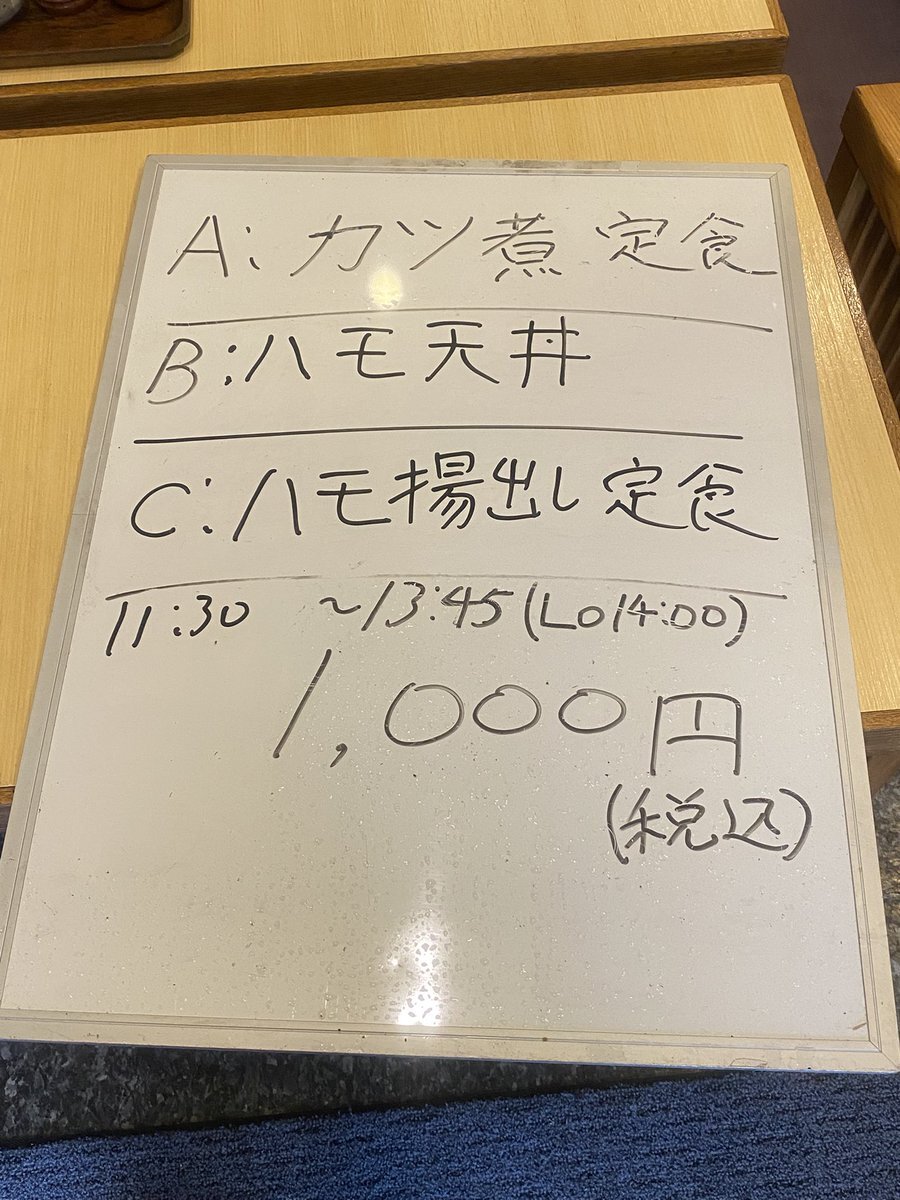 A:カツ煮定食
B:ハモ天丼
C:ハモ揚出し定食
11:30 ～13:45(LO14:00)
1,000円
(税込)